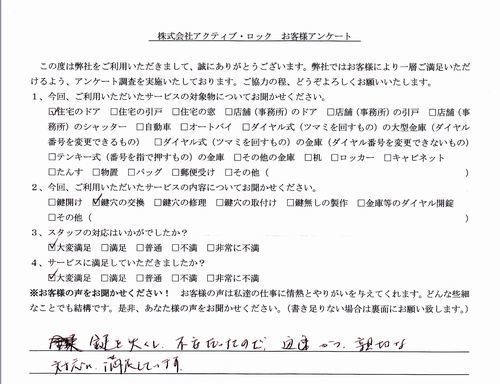 株式会社アクティブ・ロック　お客様アンケート
この度は弊社をご利用いただきまして、誠にありがとうございます。弊社ではお客様により一層ご満足いただ
けるよう、アンケート調査を実施いたしております。ご協力の程、どうぞよろしくお願いいたします。
1、今回、ご利用いただいたサービスの対象物についてお聞かせください。
☑住宅のドア　□住宅の引戸　□住宅の窓　□店舗（事務所）のドア　□店舗（事務所）の引戸　□店舗（事
務所）のシャッター　□自動車　□オートバイ　□ダイヤル式（ツマミを回すもの）の大型金庫（ダイヤル
番号を変更できるもの）　□ダイヤル式（ツマミを回すもの）の金庫（ダイヤル番号を変更できないもの）
□テンキー式（番号を指で押すもの）の金庫　□その他の金庫　□机　□ロッカー　□キャビネット
□たんす　□物置　□バッグ　□郵便受け　□その他（　　　）
2、今回、ご利用いただいたサービスの内容についてお聞かせください。
□鍵開け　☑鍵穴の交換　□鍵穴の修理　□鍵穴の取付け　□鍵無しの製作　□金庫等のダイヤル開錠
□その他（　　　）
3、スタッフの対応はいかがでしたか？
☑大変満足　□満足　□普通　□不満　□非常に不満
4、サービスに満足していただきましたか？
☑大変満足　□満足　□普通　□不満　□非常に不満
※お客様の声をお聞かせください！　お客様の声は私達の仕事に情熱とやりがいを与えてくれます。どんな些細
なことでも結構です。是非、あなた様の声をお聞かせください。（書き足りない場合は裏面にお願い致します。）
鍵を失くし、不安だったので、迅速かつ、親切な
対応に満足しています。